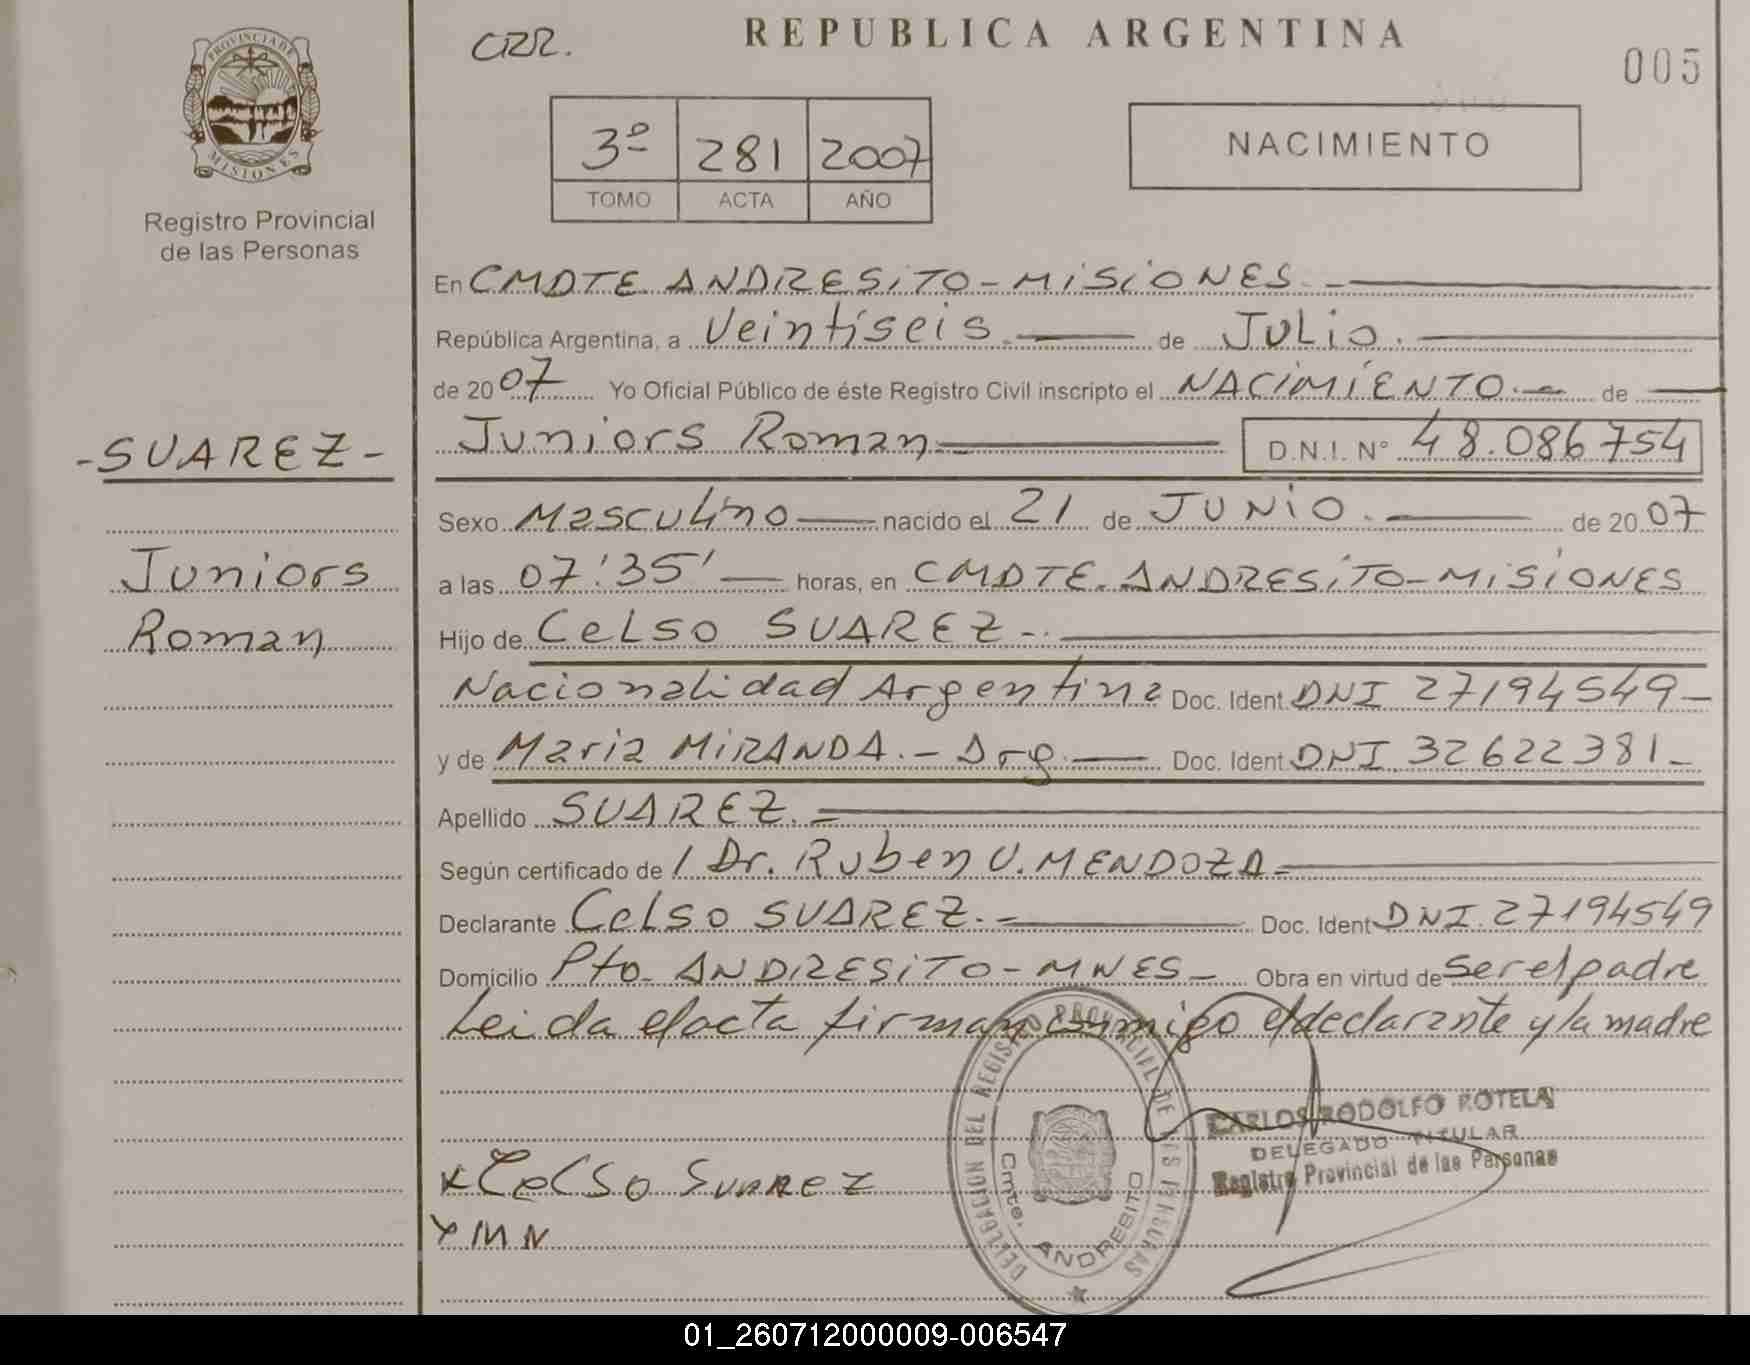 PROVINCIA DE
MISIONES
Registro Provincial
de las Personas
- SUAREZ -
Juniors
Roman
REPUBLICA ARGENTINA
005
3º 281 2007
TOMO ACTA AÑO
NACIMIENTO
En CMDTE ANDRESITO - MISIONES. -
República Argentina, a Veintiseis. de JULIO.
de 20 07 Yo Oficial Público de éste Registro Civil inscripto el NACIMIENTO. - de
Juniors Roman D.N.I. Nº 48.086754
Sexo Masculino nacido el 21 de JUNIO. de 20 07
a las 07'35' horas, en CMDTE. ANDRESITO - MISIONES
Hijo de Celso SUAREZ -.
Nacionalidad Argentina Doc. Ident. DNI 27194549 -
y de Maria MIRANDA. - Arg. Doc. Ident. DNI 32622381 -
Apellido SUAREZ. -
Según certificado de / Dr. Ruben U. MENDOZA -
Declarante Celso SUAREZ. - Doc. Ident. DNI. 27194549
Domicilio Pto. ANDRESITO - MNES - Obra en virtud de ser el padre
Leida el acta firman conmigo el declarante y la madre
DELEGACION DEL REGISTRO PROVINCIAL DE LAS PERSONAS
Cmte. ANDRESITO
CARLOS RODOLFO ROTELA
DELEGADO TITULAR
Registro Provincial de las Personas
x Celso Suarez
x M N
01_260712000009-006547